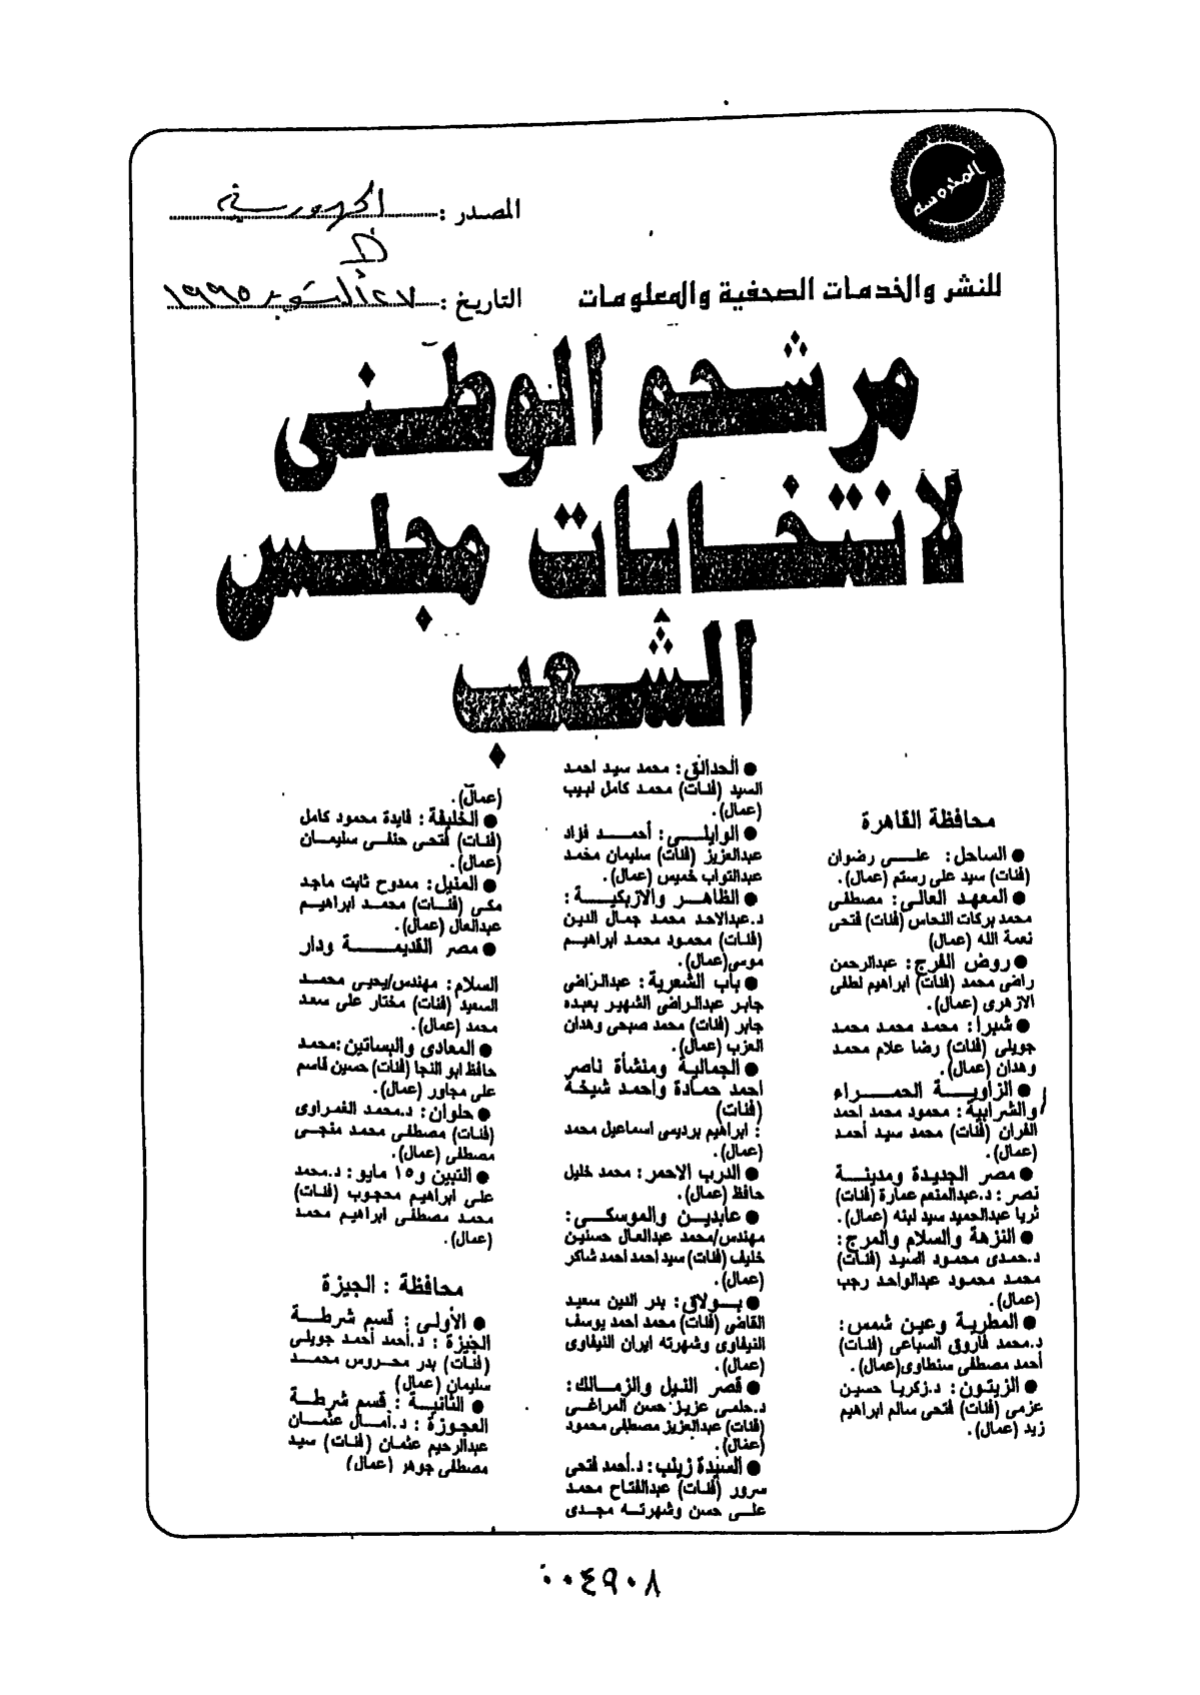 المحروسة
المصدر : الجمهورية
للنشر والخدمات الصحفية والمعلومات
التاريخ : ٢٧ أكتوبر ١٩٩٥
مرشحو الوطنى
لانتخابات مجلس
الشعب
محافظة القاهرة
● الساحل: على رضوان
(فئات) سيد على رستم (عمال).
● المعهد العالى: مصطفى
محمد بركات النحاس (فئات) فتحى
نعمة الله (عمال)
● روض الفرج: عبدالرحمن
راضى محمد (فئات) ابراهيم لطفى
الازهرى (عمال).
● شبرا: محمد محمد محمد
جويلى (فئات) رضا علام محمد
وهدان (عمال).
● الزاوية الحمراء
والشرابية: محمود محمد احمد
الفران (فئات) محمد سيد أحمد
(عمال).
● مصر الجديدة ومدينة
نصر: د.عبدالمنعم عمارة (فئات)
ثريا عبدالحميد سيد لبنه (عمال).
● النزهة والسلام والمرج:
د.حمدى محمود السيد (فئات)
محمد محمود عبدالواحد رجب
(عمال).
● المطرية وعين شمس:
د.محمد فاروق السباعى (فئات)
أحمد مصطفى سنطاوى(عمال).
● الزيتون: د.زكريا حسين
عزمى (فئات) فتحى سالم ابراهيم
زيد (عمال).
● الحدائق: محمد سيد احمد
السيد (فئات) محمد كامل لبيب
(عمال).
● الوايلى: أحمد فؤاد
عبدالعزيز (فئات) سليمان محمد
عبدالتواب خميس (عمال).
● الظاهر والازبكية:
د.عبدالاحد محمد جمال الدين
(فئات) محمود محمد ابراهيم
موسى(عمال).
● باب الشعرية: عبدالراضى
جابر عبدالراضى الشهير بعبده
جابر (فئات) محمد صبحى وهدان
العزب (عمال).
● الجمالية ومنشأة ناصر
احمد حمادة واحمد شيخة
(فئات)
: ابراهيم برديسى اسماعيل محمد
(عمال).
● الدرب الاحمر: محمد خليل
حافظ (عمال).
● عابدين والموسكى:
مهندس/محمد عبدالعال حسنين
خليف (فئات) سيد احمد احمد شاكر
(عمال).
● بولاق: بدر الدين سعيد
القاضى (فئات) محمد احمد يوسف
النيفاوى وشهرته ايران النيفاوى
(عمال).
● قصر النيل والزمالك:
د.حلمى عزيز حسن المراغى
(فئات) عبدالعزيز مصطفى محمود
(عمال).
● السيدة زينب: د.أحمد فتحى
سرور (فئات) عبدالفتاح محمد
على حسن وشهرته مجدى
(عمال).
● الخليفة: فايدة محمود كامل
(فئات) فتحى حنفى سليمان
(عمال).
● المنيل: ممدوح ثابت ماجد
مكى (فئات) محمد ابراهيم
عبدالعال (عمال).
● مصر القديمة ودار
السلام: مهندس/يحيى محمد
السعيد (فئات) مختار على سعد
محمد (عمال).
● المعادى والبساتين:محمد
حافظ ابو النجا (فئات) حسين قاسم
على مجاور (عمال).
● حلوان: د.محمد الغمراوى
(فئات) مصطفى محمد منجى
مصطفى (عمال).
● التبين و١٥ مايو: د.محمد
على ابراهيم محجوب (فئات)
محمد مصطفى ابراهيم محمد
(عمال).
محافظة : الجيزة
● الأولى : قسم شرطة
الجيزة : د.أحمد أحمد جويلى
(فئات) بدر محروس محمد
سليمان (عمال)
● الثانية : قسم شرطة
العجوزة : د.أمال عثمان
عبدالرحيم عثمان (فئات) سيد
مصطفى جوهر (عمال)
٠٠٤٩٠٨